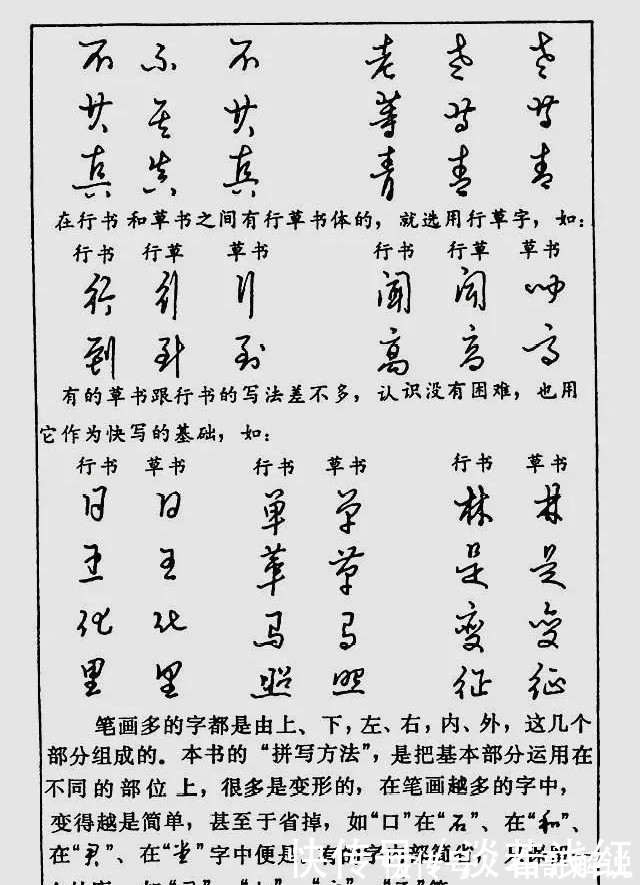 不 不 不 老 老 老
共 共 共 等 等 等
真 真 真 青 青 青
在行书和草书之间有行草书体的，就选用行草字，如：
行书 行草 草书 行书 行草 草书
行 行 行 闻 闻 闻
到 到 到 高 高 高
有的草书跟行书的写法差不多，认识没有困难，也用
它作为快写的基础，如：
行书 草书 行书 草书 行书 草书
日 日 单 单 林 林
王 王 革 革 是 是
化 化 马 马 变 变
里 里 照 照 征 征
笔画多的字都是由上、下，左、右，内、外，这几个
部分组成的。本书的“拼写方法”，是把基本部分运用在
不同的部位上，很多是变形的，在笔画越多的字中，
变得越是简单，甚至于省掉，如“口”在“石”、在“和”、
在“君”、在“堂”字中便是。有
快传号